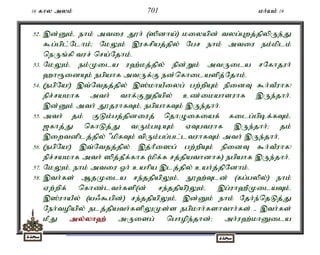 16 கால அலம் 701 மர்யம் 19
52. இன்னும், நாம் அவரை தூர் (ஸீனாய்) மலையின் வலப்புறத்திலிருந்து
கூப்பிட்டோம்; மேலும் இரகசியத்தில் பேச நாம் அவரை நம்மிடம்
நெருங்கி வரச் செய்தோம்.
53. மேலும், நம்முடைய ரஹ்மத்தில் நின்றும் அவருடைய சகோதரர்
ஹாரூனையும் நபியாக அவருக்கு நன்கொடையளித்தோம்.
54. (நபியே!) இவ்வேதத்தில் இஸ்மாயீலைப் பற்றியும் நினைவு கூர்வீராக!
நிச்சயமாக அவர் வாக்குறுதியில் உண்மையாளராக இருந்தார்.
இன்னும் அவர் தூதராகவும், நபியாகவும் இருந்தார்.
55. அவர் தம் குடும்பத்தினரைத் தொழுகையைக் கடைப்பிடிக்கவும்,
ஜகாத்து கொடுத்து வரும்படியும் ஏவுபவராக இருந்தார்; தம்
இறைவனிடத்தில் மிகவும் விரும்பப்பட்டவராகவும் அவர் இருந்தார்.
56. (நபியே!) இவ்வேதத்தில் இத்ரீஸைப் பற்றியும் நினைவு கூர்வீராக!
நிச்சயமாக அவர் ஸித்தீக்காக (மிக்க சத்தியவானாக) நபியாக இருந்தார்.
57. மேலும், நாம் அவரை ஓர் உயரிய இடத்தில் உயர்த்தினோம்.
58. இவர்கள் ஆதமுடைய சந்ததியிலும், நூஹ்வுடன் (கப்பலில்) நாம்
ஏற்றிக் கொண்டவர்களி(ன் சந்ததியி)லும், இப்ராஹீமுடையவும்,
இஸ்ராயீல் (யஃகூபின்) சந்ததியிலும், இன்னும் நாம் தேர்ந்தெடுத்து
நேர்வழியில் நடத்தியவர்களிலுமுள்ள நபிமார்களாவார்கள் - இவர்கள்
மீது அல்லாஹ் அருளைப் பொழிந்தான்; அர்ரஹ்மானுடைய